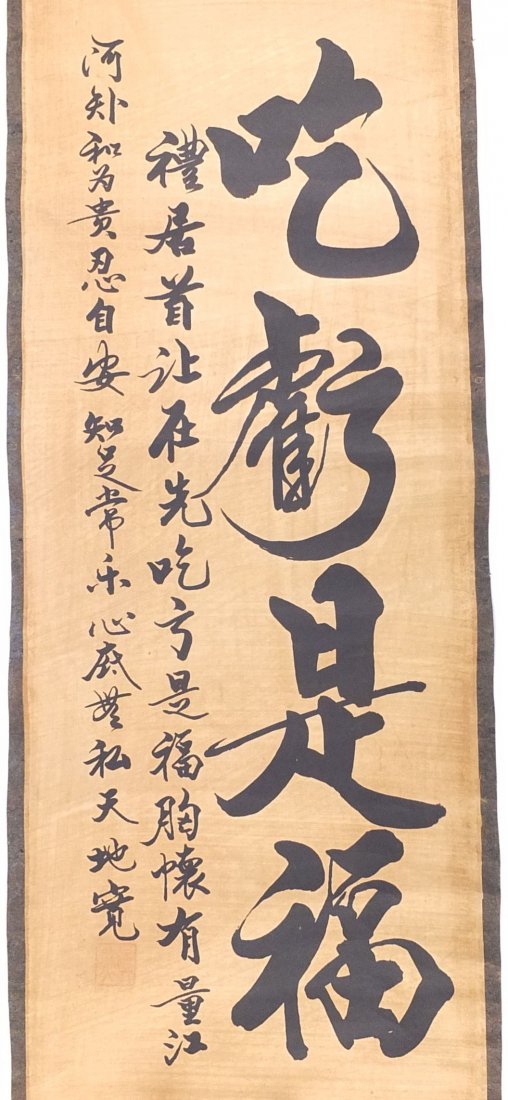 吃虧是福
禮居首让在先吃亏是福胸懷有量江
河和为贵忍自安知足常乐心底無私天地寬